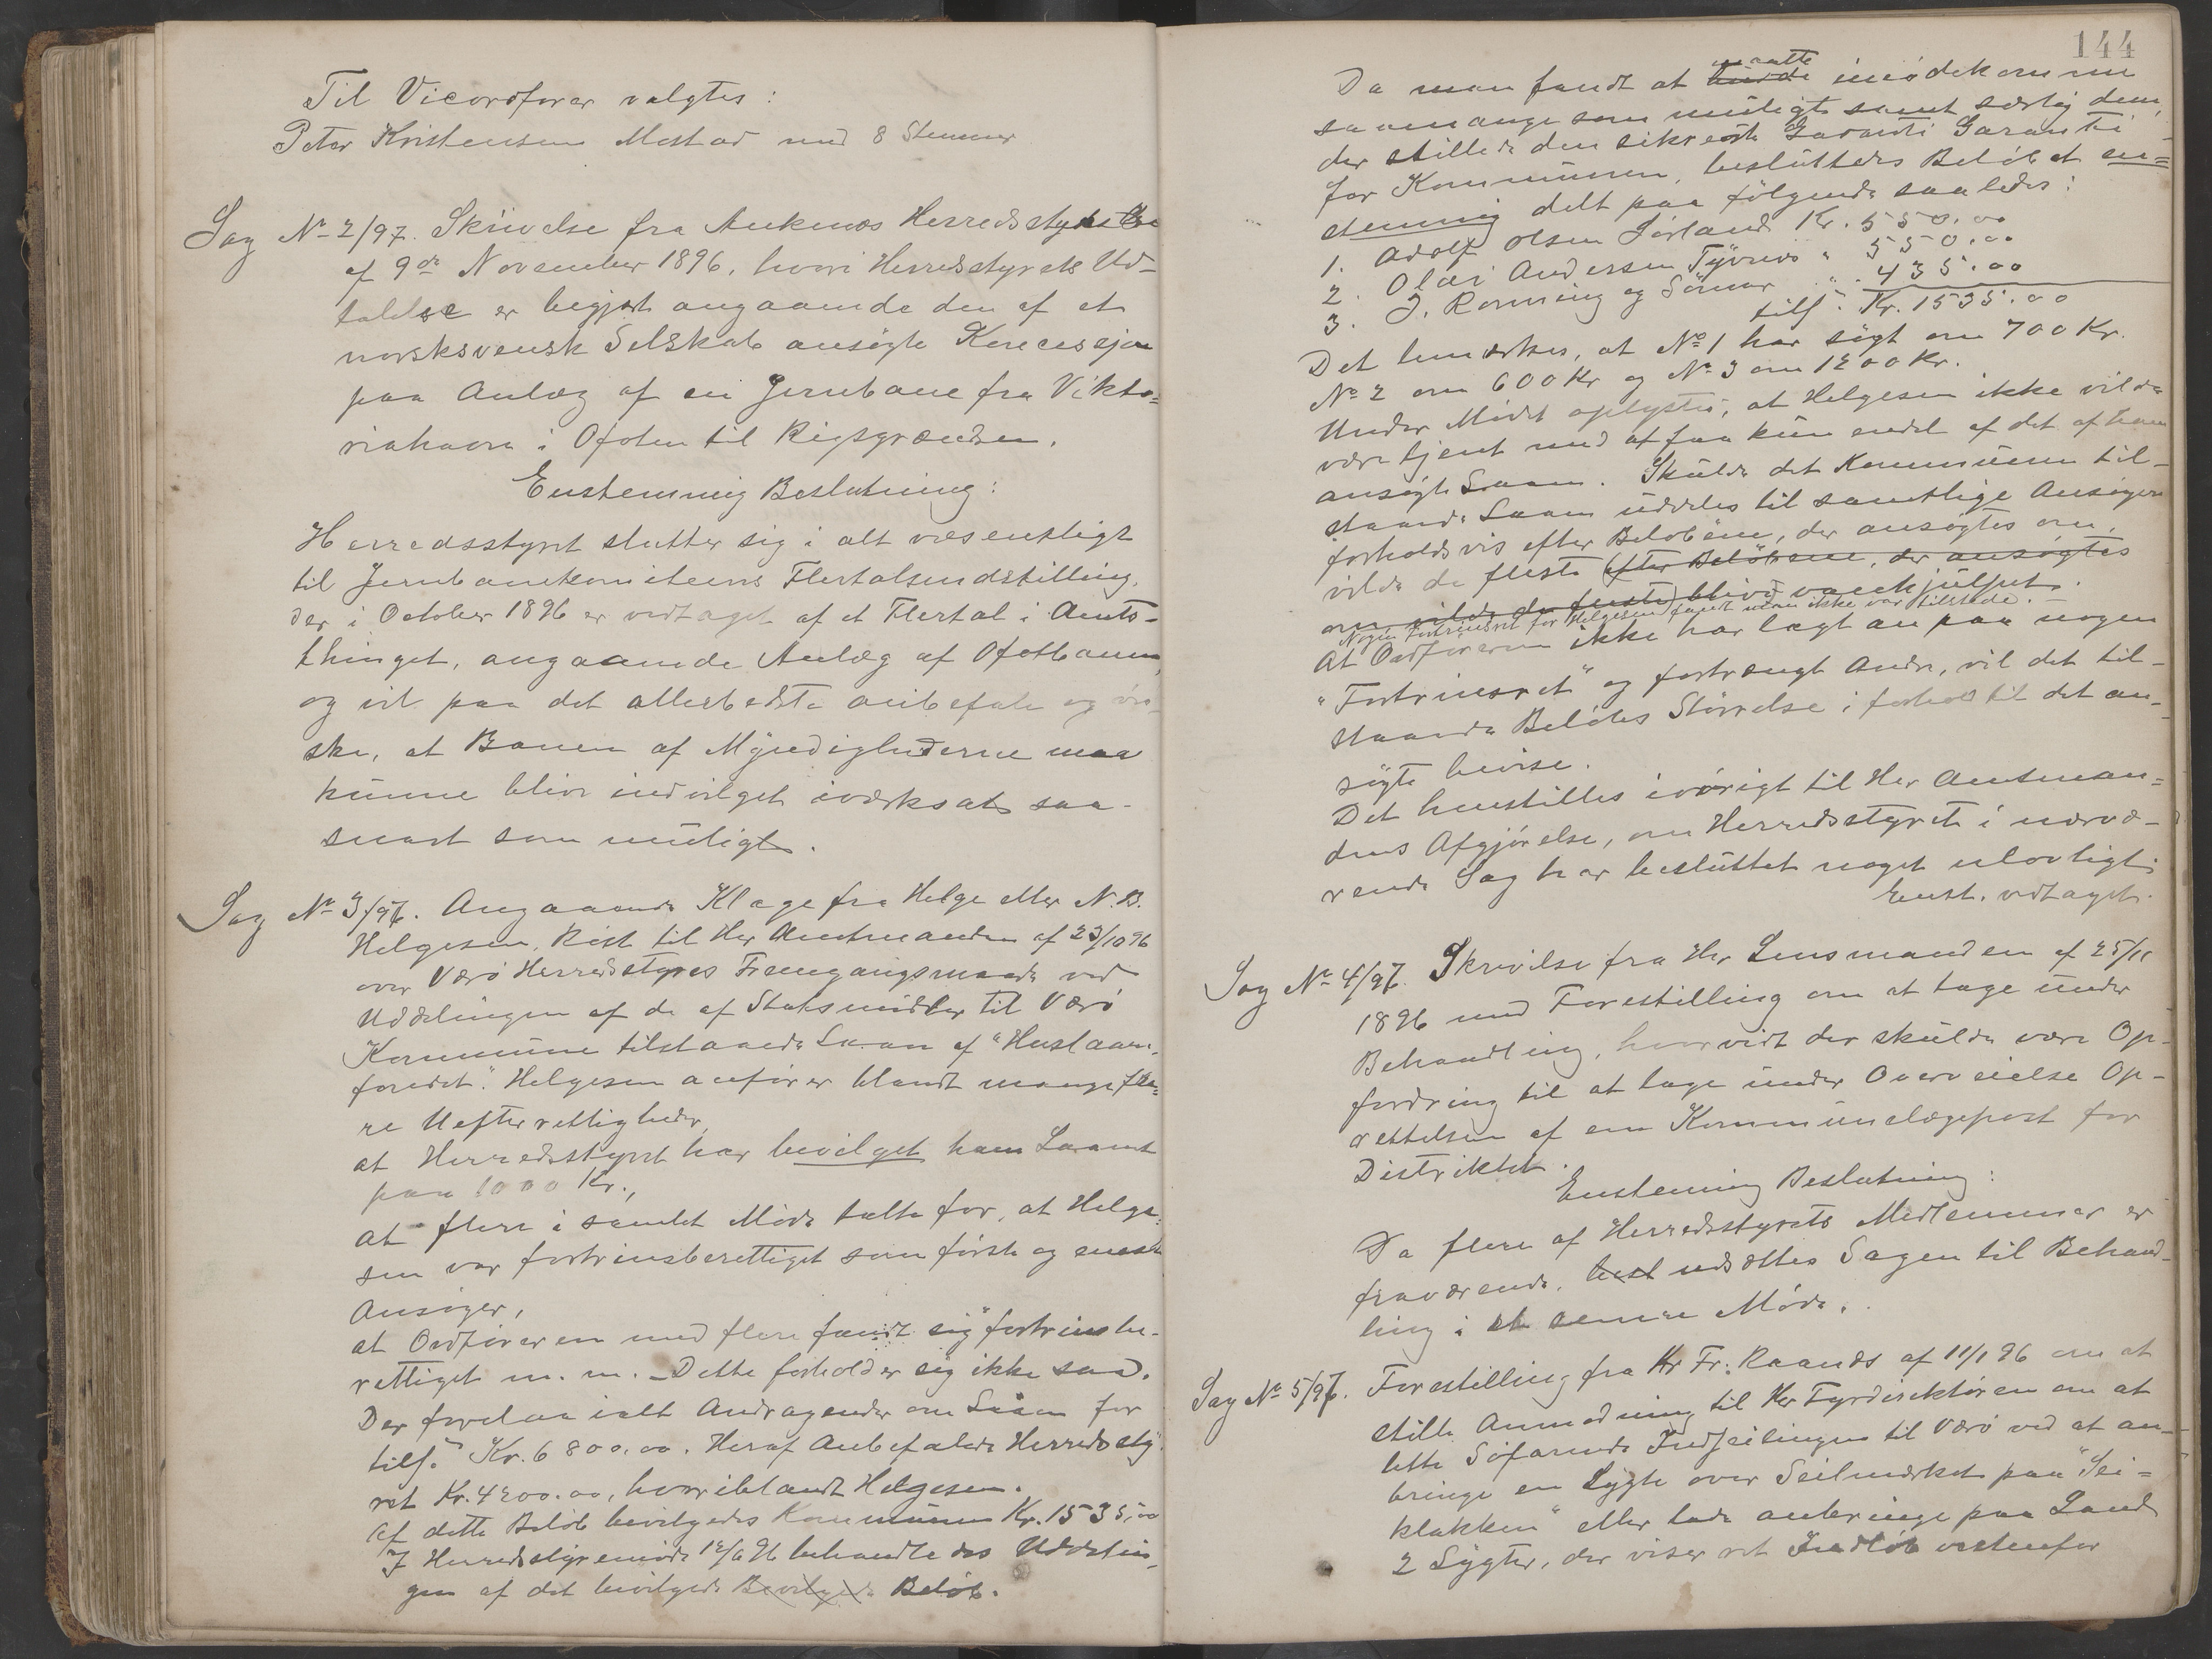 Til Viceordfører valgtes:
Peter Kristensen Mostad med 8 Stemmer
Sag No 2/97. Skrivelse fra Ankenes Herredsstyrelse
af 9de November 1896, hvori Herredsstyrets Ud-
talelse er begjært angaaende den af et
norsksvensk Selskab ansøgte Koncessjon
paa Anlæg af en Jernbane fra Vikto=
riahavn i Ofoten til Rigsgrændsen.
Enstemmig Beslutning:
Herredsstyret slutter sig i alt væsentligt
til Jernbanekomiteens Flertalsindstilling,
der i October 1896 er vedtaget af et Flertal i Amts-
thinget, angaaende Anlæg af Ofotbanen,
og vil paa det allerbedste anbefale og øn-
ske, at Banen af Myndighederne maa
kunne blive indvilget iværksat saa-
snart som muligt.
Sag No 3/97. Angaaende Klage fra Helge eller N.B.
Helgesen, Røst til Hr Amtmanden af 23/10 96
over Værø Herredsstyres Fremgangsmaade ved
Uddelingen af de af Statsmidler til Værø
Kommune tilstaaede Laan af "Huslaane-
fondet". Helgesen anfører blandt mange fle=
re Uefterrettigheder,
at Herredsstyret har bevilget ham Laanet
paa 1000 Kr.,
at flere i samlet Møde talte for, at Helge=
sen var fortrinsberettiget som første og eneste
Ansøger,
at Ordføreren med flere fandt sig "fortrinsbe-
rettiget m. m. - Dette forholder sig ikke saa.
Der forelaa ialt Andragender om Laan for
tils. Kr. 6800.00. Heraf Anbefalede Herredssty-
ret Kr. 4200.00, hvoriblandt Helgesen.
Af dette Beløb bevilgedes Kommunen Kr. 1535,00
I Herredsstyremøde 12/6 96 behandledes Uddelin-
gen af det bevilgede Bevilgede Beløb.
144
maatte
Da man fandt at burde imødekomme
saa mange som muligt samt særlig dem,
der stillede den sikreste Garanti Garanti
for Kommunen, besluttedes Beløbet en=
stemmig delt paa følgende saaledes:
1. Adolf Olsen Sørland Kr. 550.00
2. Olai Andersen Tyvnes " 550.00
3. J. Rønning og Sønner " 435.00
tils. Kr. 1535.00
Det bemærkes, at No 1 har søgt om 700 Kr.
No 2 om 600 Kr og No 3 om 1200 Kr.
Under Mødet oplystes, at Helgesen ikke vilde
være tjent med at faa kun endel af det af ham
ansøgte Laan. Skulde det Kommunen til-
staaede Laan uddeles til samtlige Ansøgere
forholdsvis efter Beløbene, der ansøgtes om,
vilde de fleste (efter Beløbene, der ansøgtes
om vilde de fleste) blive vanhjulpet.
Nogen Fortrinsret for Helgesen fandt man ikke var tilstede.
At Ordføreren ikke har lagt an paa nogen
"Fortrinsret" og fortrængt Andre, vil det til-
staaede Beløbs Størrelse i forhold til det an-
søgte bevise.
Det henstilles iøvrigt til Hr Amtman=
dens Afgjørelse, om Herredsstyret i nærvæ-
rende Sag har besluttet noget ulovligt.
Enst. vedtaget.
Sag No 4/97. Skrivelse fra Hr Lensmanden af 25/11
1896 med Forestilling om at tage under
Behandling, hvorvidt der skulde være Op-
fordring til at tage under Overveielse Op-
rettelsen af en Kommunelægepost for
Distriktet.
Enstemmig Beslutning:
Da flere af Herredsstyrets Medlemmer er
fraværende, best udsættes Sagen til Behand-
ling i et senere Møde.
Sag No 5/97. Forestilling fra Hr Fr. Raands af 11/1 96 om at
stille Anmodning til Hr Fyrdirektøren om at
lette Søfarende Indseilingen til Værø ved at an-
bringe en Lygte over Seilmærket paa "Sei=
klakken" eller lade anbringe paa Land
2 Lygter, der viser ret Indløb vestenfor